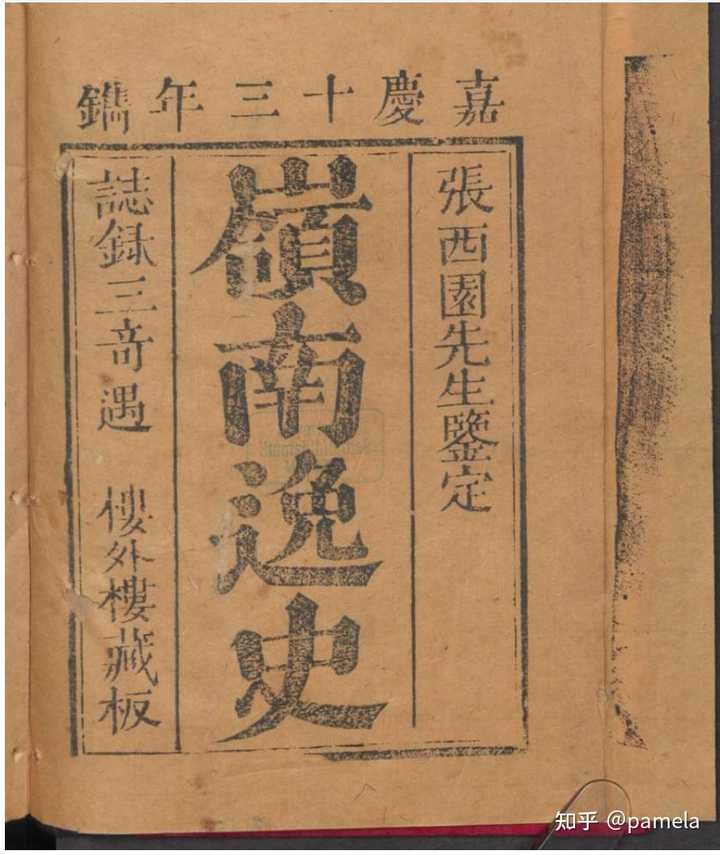 嘉慶十三年鐫
張西園先生鑒定
嶺南逸史
誌録三奇遇 樓外樓藏板
知乎 @pamela